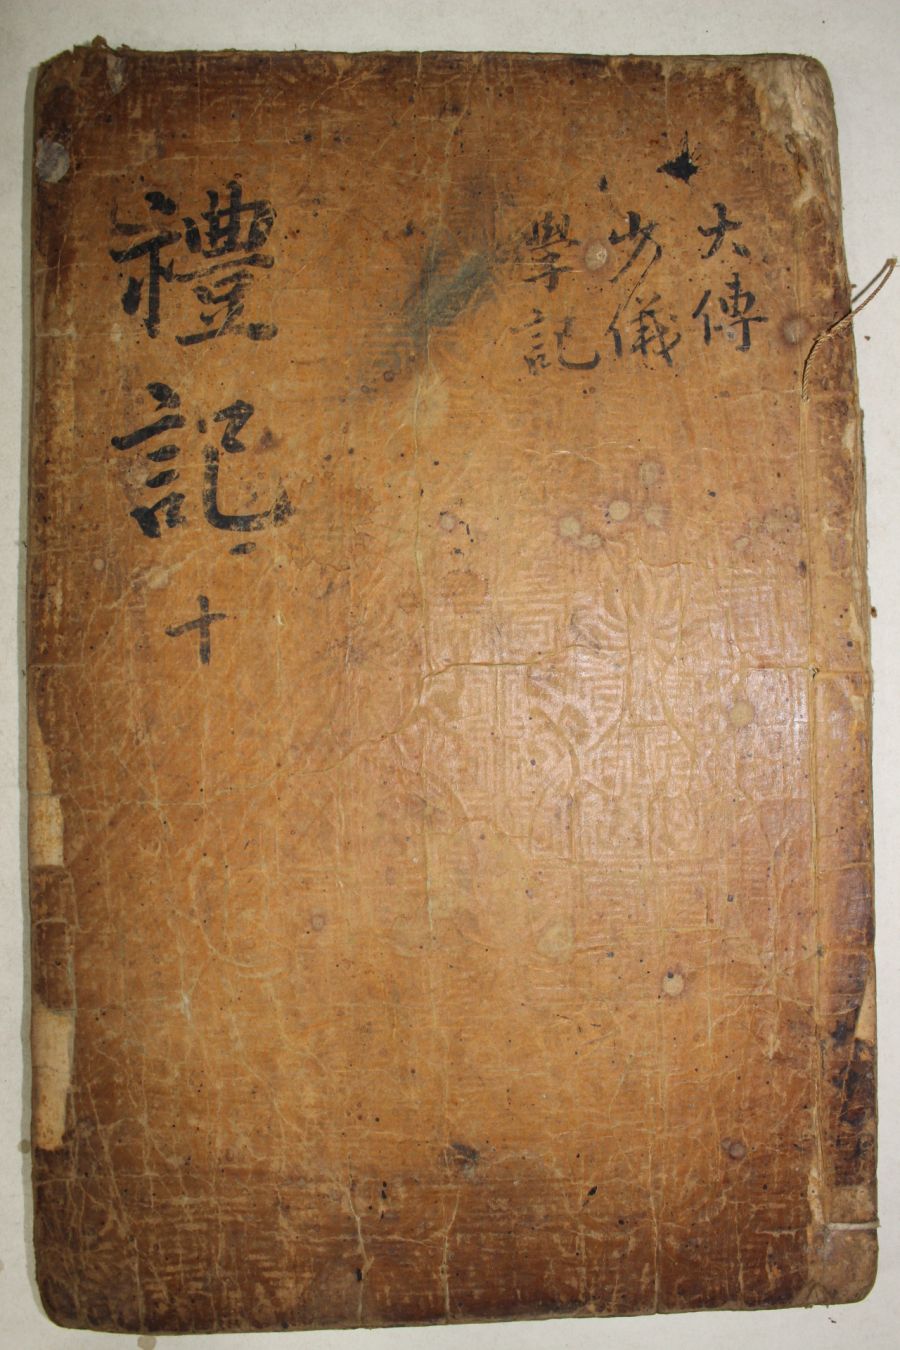 大傳
少儀
學記
禮記 十